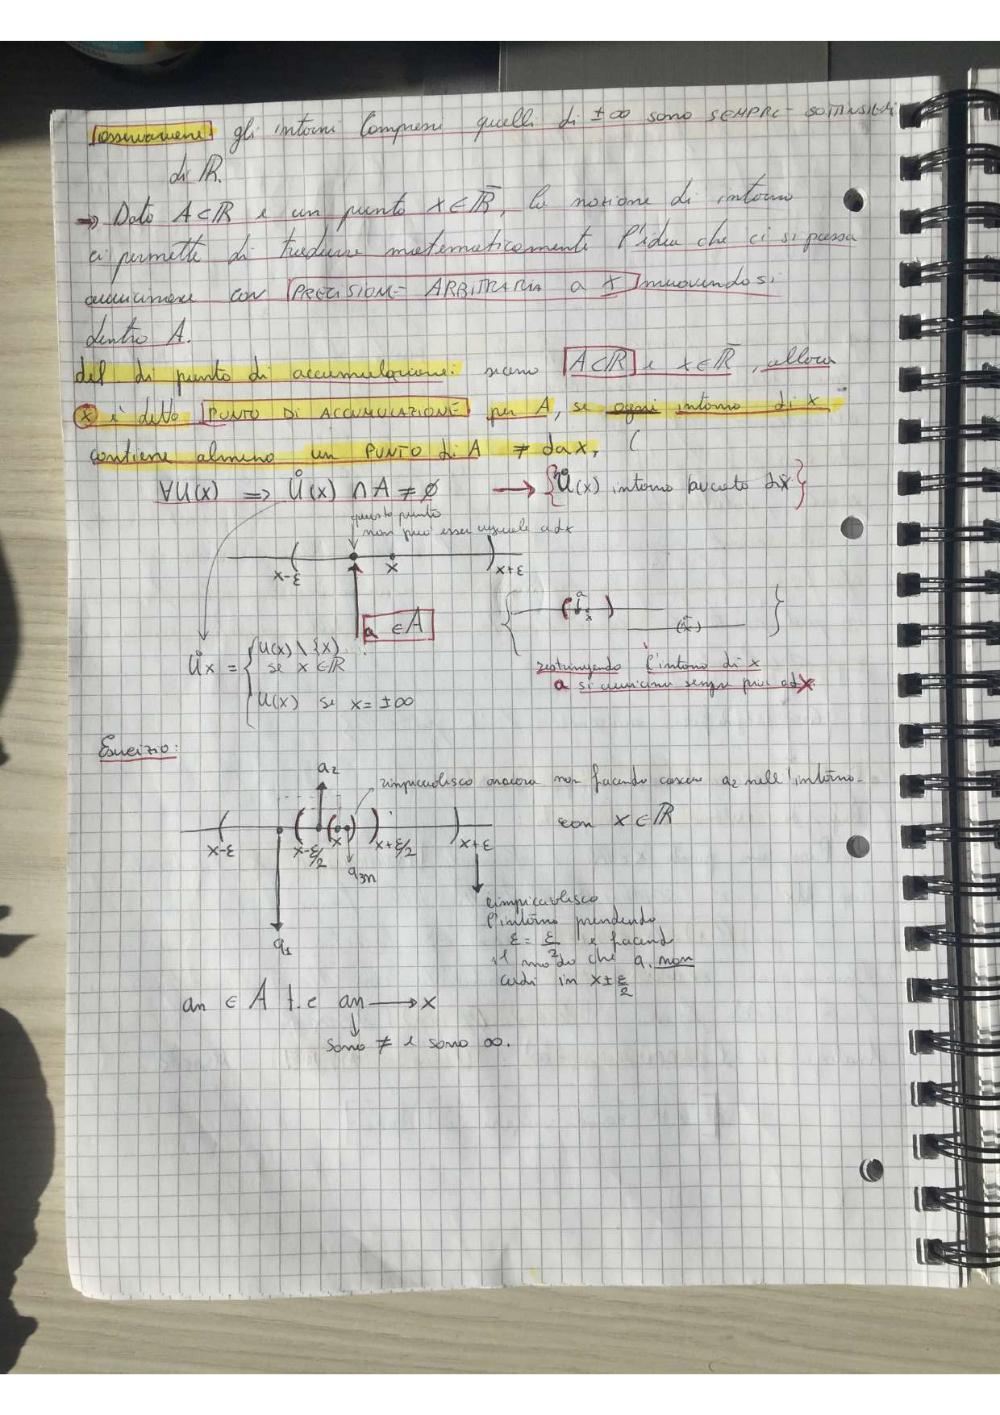 osservazione: gli intorni compresi quelli di ±∞ sono SEMPRE SOTTINSIEMI
di ℝ.
→ Dato A⊂ℝ e un punto x∈ℝ̄, la nozione di intorno
ci permette di tradurre matematicamente l'idea che ci si possa
avvicinare con PRECISIONE ARBITRARIA a x muovendosi
dentro A.
def. di punto di accumulazione: siano A⊂ℝ e x∈ℝ̄, allora
x è detto PUNTO DI ACCUMULAZIONE per A, se ogni intorno di x
contiene almeno un PUNTO di A ≠ da x, (
∀U(x) => Ů(x) ∩ A ≠ ∅ → {Ů(x) intorno bucato di x}
questo punto
non può esser uguale ad x
x-ε x x+ε
a ∈ A
Ůx = { U(x) \ {x} se x ∈ ℝ
U(x) se x = ±∞
restringendo l'intorno di x
a si avvicina sempre più ad x
Esercizio:
a2
rimpicciolisco ancora non facendo cadere a2 nell'intorno
con x∈ℝ
x-ε x-ε/2 x x+ε/2 x+ε
a3n
a1
rimpicciolisco
l'intorno prendendo
ε = ε/2 e facend
il modo che a1 non
cadi in x±ε/2
an ∈ A t.c an → x
sono ≠ e sono ∞.